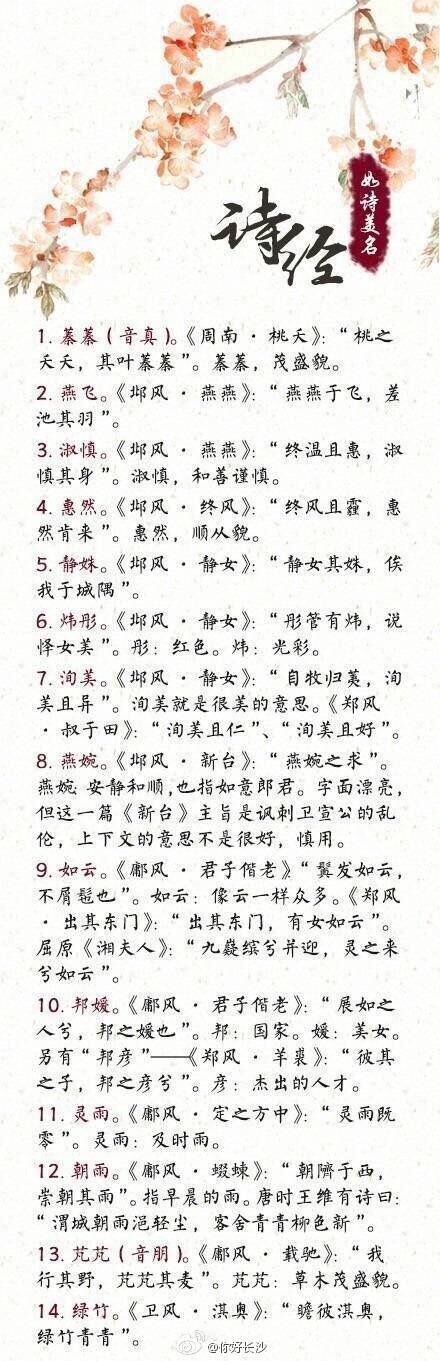 诗经
如诗美名
1. 蓁蓁（音真）。《周南·桃夭》：“桃之
夭夭，其叶蓁蓁”。蓁蓁，茂盛貌。
2. 燕飞。《邶风·燕燕》：“燕燕于飞，差
池其羽”。
3. 淑慎。《邶风·燕燕》：“终温且惠，淑
慎其身”。淑慎，和善谨慎。
4. 惠然。《邶风·终风》：“终风且霾，惠
然肯来”。惠然，顺从貌。
5. 静姝。《邶风·静女》：“静女其姝，俟
我于城隅”。
6. 炜彤。《邶风·静女》：“彤管有炜，说
怿女美”。彤：红色。炜：光彩。
7. 洵美。《邶风·静女》：“自牧归荑，洵
美且异”。洵美就是很美的意思。《郑风
·叔于田》：“洵美且仁”、“洵美且好”。
8. 燕婉。《邶风·新台》：“燕婉之求”。
燕婉:安静和顺,也指如意郎君。字面漂亮，
但这一篇《新台》主旨是讽刺卫宣公的乱
伦，上下文的意思不是很好，慎用。
9. 如云。《鄘风·君子偕老》“鬒发如云，
不屑髢也”。如云：像云一样众多。《郑风
·出其东门》：“出其东门，有女如云”。
屈原《湘夫人》：“九嶷缤兮并迎，灵之来
兮如云”。
10. 邦媛。《鄘风·君子偕老》：“展如之
人兮，邦之媛也”。邦：国家。媛：美女。
另有“邦彦”——《郑风·羊裘》：“彼其
之子，邦之彦兮”。彦：杰出的人才。
11. 灵雨。《鄘风·定之方中》：“灵雨既
零”。灵雨：及时雨。
12. 朝雨。《鄘风·蝃蝀》：“朝隮于西，
崇朝其雨”。指早晨的雨。唐时王维有诗曰：
“渭城朝雨浥轻尘，客舍青青柳色新”。
13. 芃芃（音朋）。《鄘风·载驰》：“我
行其野，芃芃其麦”。芃芃：草木茂盛貌。
14. 绿竹。《卫风·淇奥》：“瞻彼淇奥，
绿竹青青”。
@你好长沙